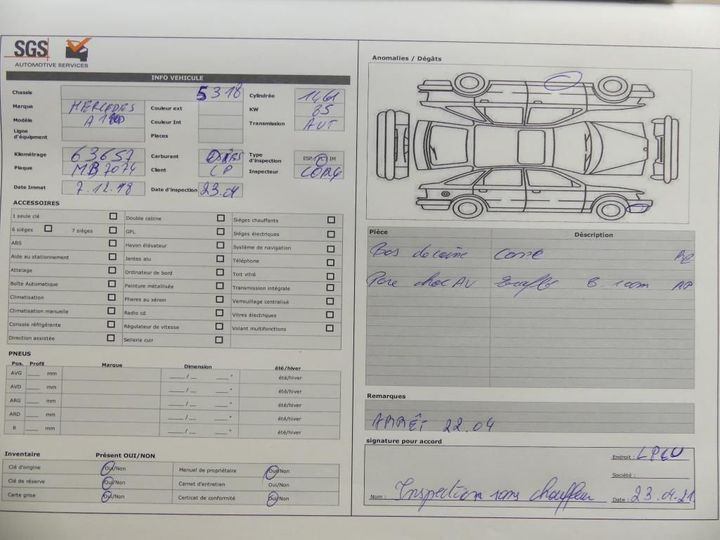 SGS
AUTOMOTIVE SERVICES
INFO VEHICULE
Chassis 5318 Cylindrée 1461
Marque MERCEDES Couleur ext KW 85
Modèle A 180 Couleur Int Transmission AUT
Ligne d'équipement Places
Kilométrage 63657 Carburant Type d'inspection ESP/PL/IM
Plaque MB7074 Client CP Inspecteur
Date Immat 7.12.18 Date d'inspection 23.04
ACCESSOIRES
1 seule clé Double cabine Sièges chauffants
6 sièges 7 sièges GPL Sièges électriques
ABS Hayon élévateur Système de navigation
Aide au stationnement Jantes alu Téléphone
Attelage Ordinateur de bord Toit vitré
Boîte Automatique Peinture métalisée Transmission intégrale
Climatisation Phares au xénon Verrouillage centralisé
Climatisation manuelle Radio cd Vitres électriques
Console réfrigérante Régulateur de vitesse Volant multifonctions
Direction assistée Sellerie cuir
PNEUS
Pos. Profil Marque Dimension été/hiver
AVG mm / " été/hiver
AVD mm / " été/hiver
ARG mm / " été/hiver
ARD mm / " été/hiver
R mm / " été/hiver
Inventaire Présent OUI/NON
Clé d'origine Oui/Non Manuel de propriétaire Oui/Non
Clé de réserve Oui/Non Carnet d'entretien Oui/Non
Carte grise Oui/Non Certicat de conformité Oui/Non
Anomalies / Dégâts
Pièce Déscription
Bas de caisse
Pare choc AV
Remarques
ARRÊT 22.04
signature pour accord
Endroit :
Société :
Nom : Inspection sans chauffeur Date : 23.04.21